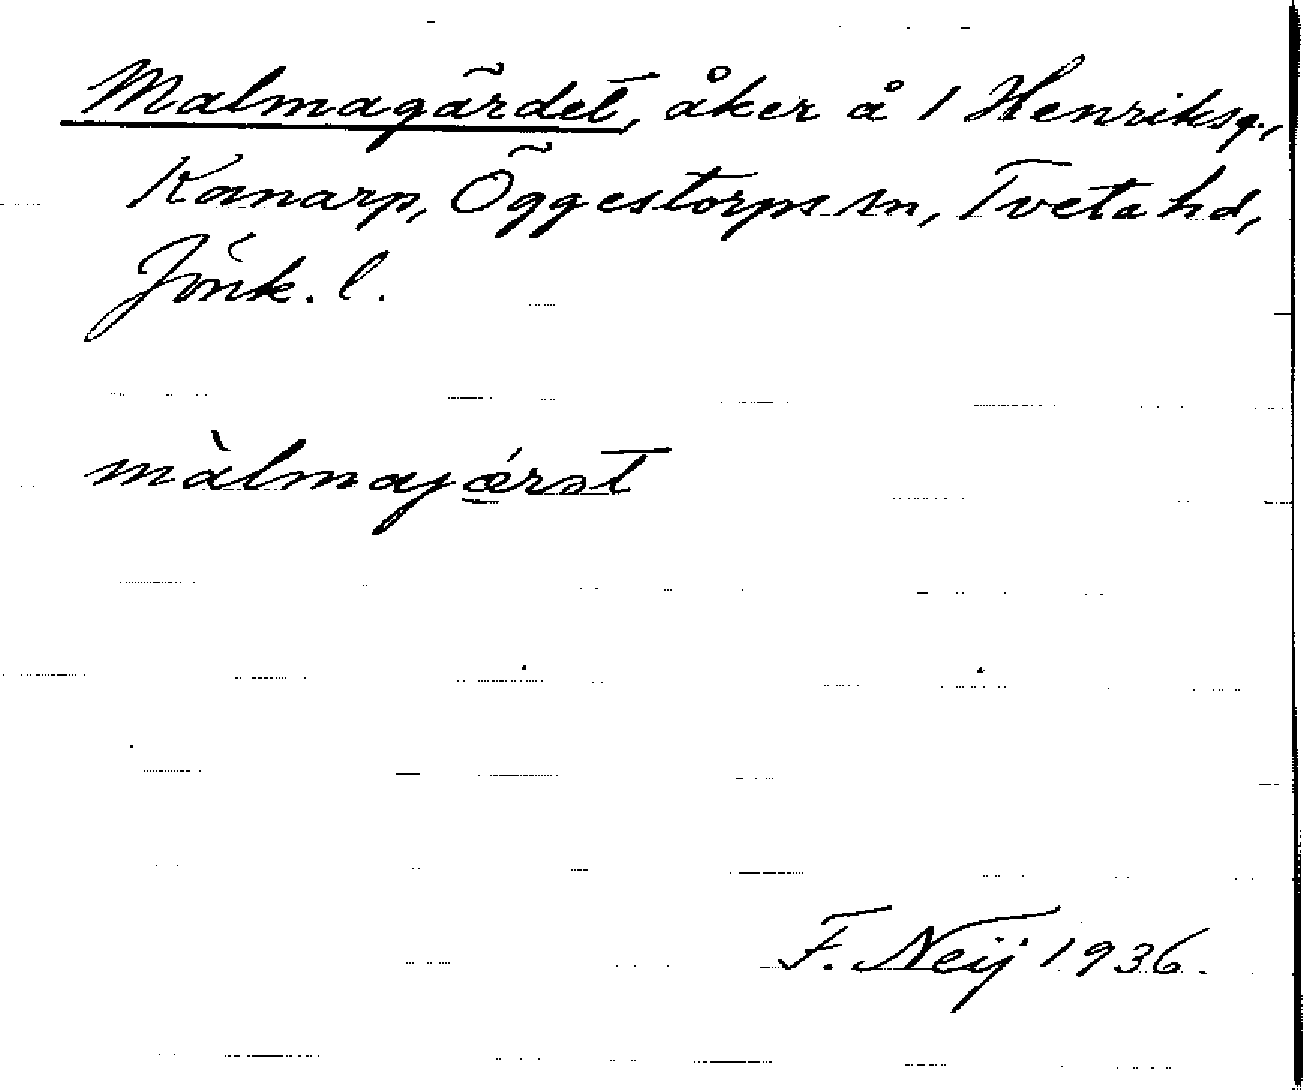 Malmagärdet, åker å 1 Henriksg.,
Kanarp, Öggestorps sn, Tveta hd,
Jönk. l.
màlmajǽrət
F. Neij 1936.